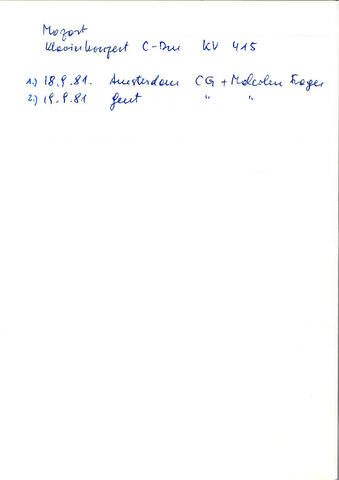 Mozart
Klavierkonzert C-Dur KV 415
1.) 18.9.81. Amsterdam CG + Malcolm Frager
2.) 19.9.81 Gent " "